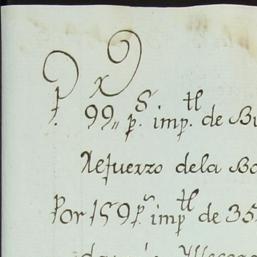 P. X
99,, p.s imp.tl de Bu
Refuerzo dela Bo
Por 159 p.s imp.tl de 35